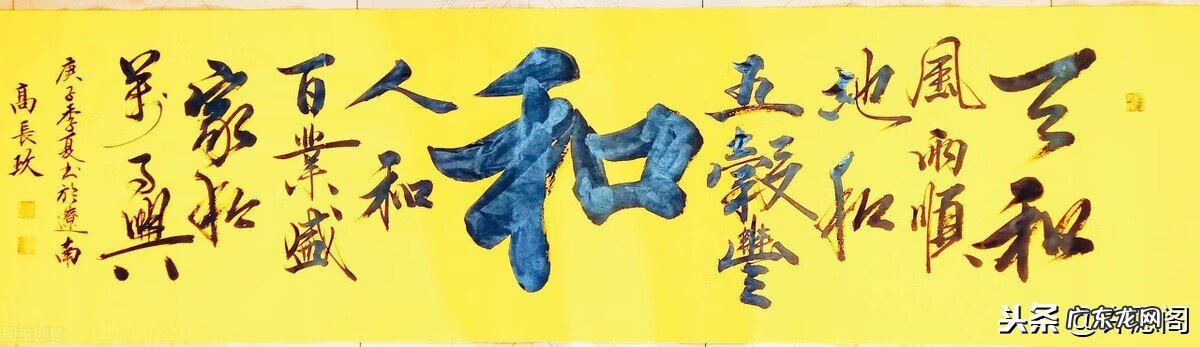 天和
風雨順
地和
五穀豐
和
人和
百業盛
家和
萬事興
庚子季夏書於遼南
高長玖
图虫创意
头条@
广东龙网
阁